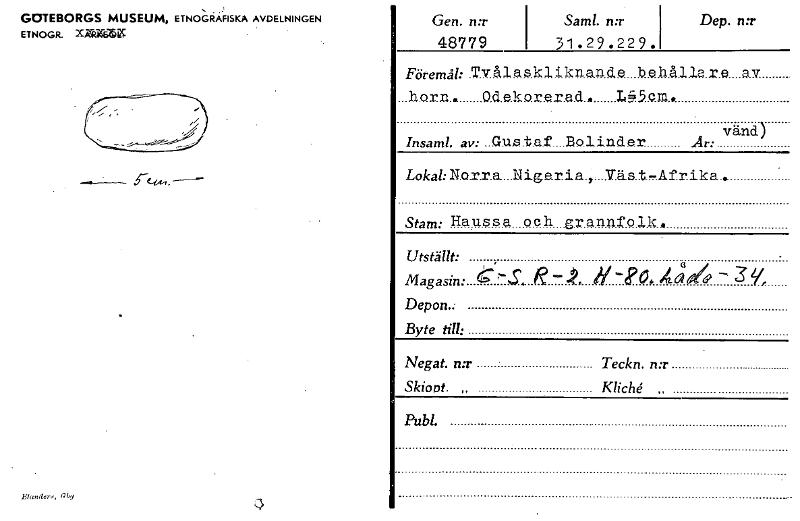 GÖTEBORGS MUSEUM, ETNOGRAFISKA AVDELNINGEN
ETNOGR.
5 cm.
Blanders, Gbg
Gen. n:r Saml. n:r Dep. n:r
48779 31.29.229.
Föremål: Tvålaskliknande behållare av
horn. Odekorerad. L=5cm.
Insaml. av: Gustaf Bolinder År: vänd)
Lokal: Norra Nigeria, Väst-Afrika.
Stam: Haussa och grannfolk.
Utställt:
Magasin: G-S. R-2. H-80. Låda-34.
Depon.:
Byte till:
Negat. n:r Teckn. n:r
Skiopt. „ Kliché „
Publ.